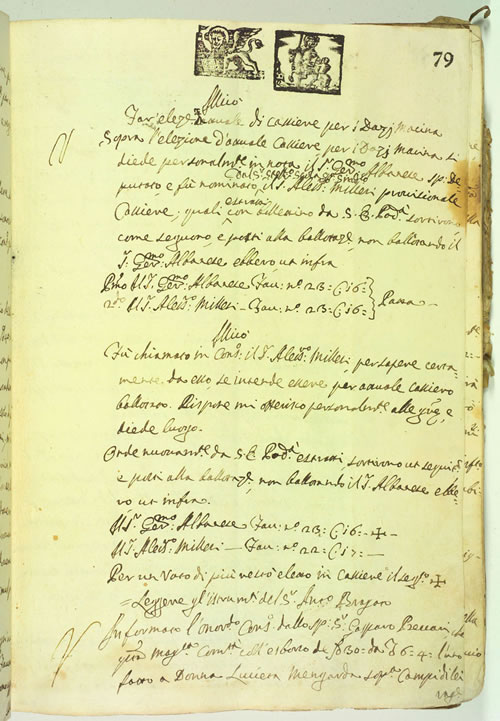 79
Illico
Far elez.e d'avuale di Cassiere per i Dazj Macina
Sopra l'elezione d'avuale Cassiere per i Dazj Macina si
diede personalm.te in nota il S.r Ger.mo Albanese sp. De-
putato e fù nominato il S. Aless.o Milleri provisionale
Cassiere; quali con bollettino da S. E. Pod.a sortirono
come seguono, e posti alla ballotaz.e, non ballotando il
S. Ger.mo Albanese ebbero, ut infra
P.mo Il S. Ger.mo Albanese Fau: n.o 23: C. 16:
2.do Il S. Aless.o Milleri – Fau: n.o 23: C. 16:
Illico
Fù chiamato in Cons.o il S. Aless.o Milleri, per sapere certa-
mente da esso se intende essere per avuale Cassiero
ballotato. Rispose mi offerisco personalm.te alle
diede luogo.
Onde nuovam.te da S. E. Pod.a estratti, sortirono ut seguit
e posti alla ballotaz.e, non ballotando il S. Albanese ebbe-
ro ut infra.
Il S. Ger.mo Albanese Fau: n.o 23: C. 16 – +
Il S. Aless.o Milleri – Fau: n.o 22: C. 17: –
Per un Voto di più restò eletto in Cassiere il seg.to +
Leggere gl'Istrum.ti del S.r Ant.o
Informato l'Onor.do Cons.o dallo sp. S. Gasparo
fatto a Donna Lucieta Mengarda Campi di lei